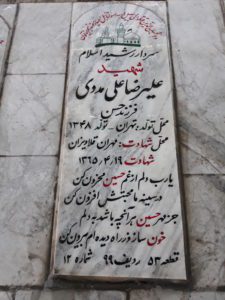 سردار رشید اسلام
شهید
علیرضا علی مددی
فرزند حسن
محل تولد: تهران - تولد ۱۳۴۸
محل شهادت: مهران قلاویزان
شهادت ۱۳۶۵/۴/۱۹
یارب دلم از غم حسین محزون کن
در سینه ما محبتش افزون کن
جز مهر حسین هر آنچه باشد به دلم
خون ساز و ز راه دیده‌ام بیرون کن
قطعه ۵۳ ردیف ۹۹ شماره ۱۲